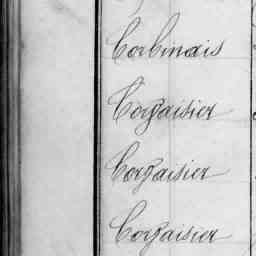 Corbinais
Corgaisier
Corgaisier
Corgaisier